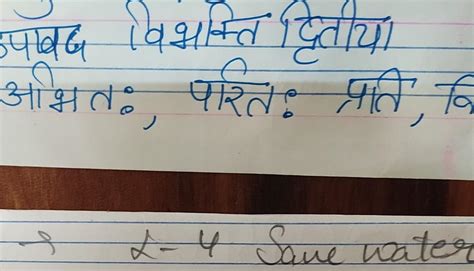 उपपद विभक्ति द्वितीया
अभितः, परितः प्रति,
L-4 Save water